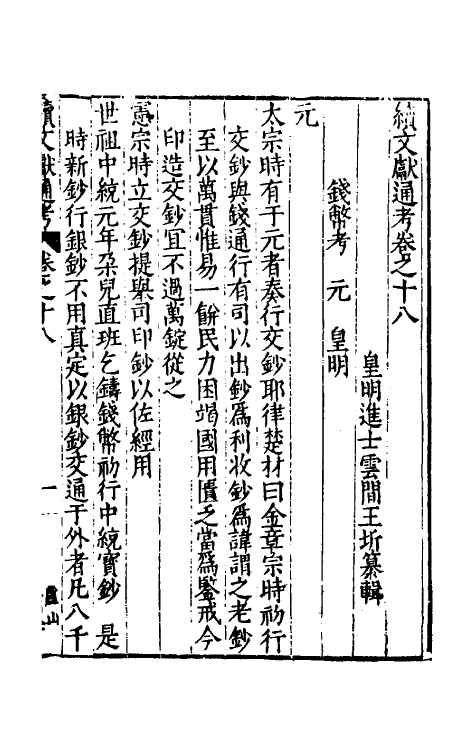 續文獻通考卷之十八
皇明進士雲間王圻纂輯
錢幣考 元 皇明
元
太宗時有于元者奏行交鈔耶律楚材曰金章宗時初行
交鈔與錢通行有司以出鈔爲利收鈔爲諱謂之老鈔
至以萬貫惟易一餅民力困竭國用匱乏當爲鑒戒今
印造交鈔宜不過萬錠從之
憲宗時立交鈔提舉司印鈔以佐經用
世祖中統元年朶兒直班乞鑄錢幣初行中統寶鈔 是
時新鈔行銀鈔不用真定以銀鈔交通于外者凡八千
續文獻通考 卷之十八 一